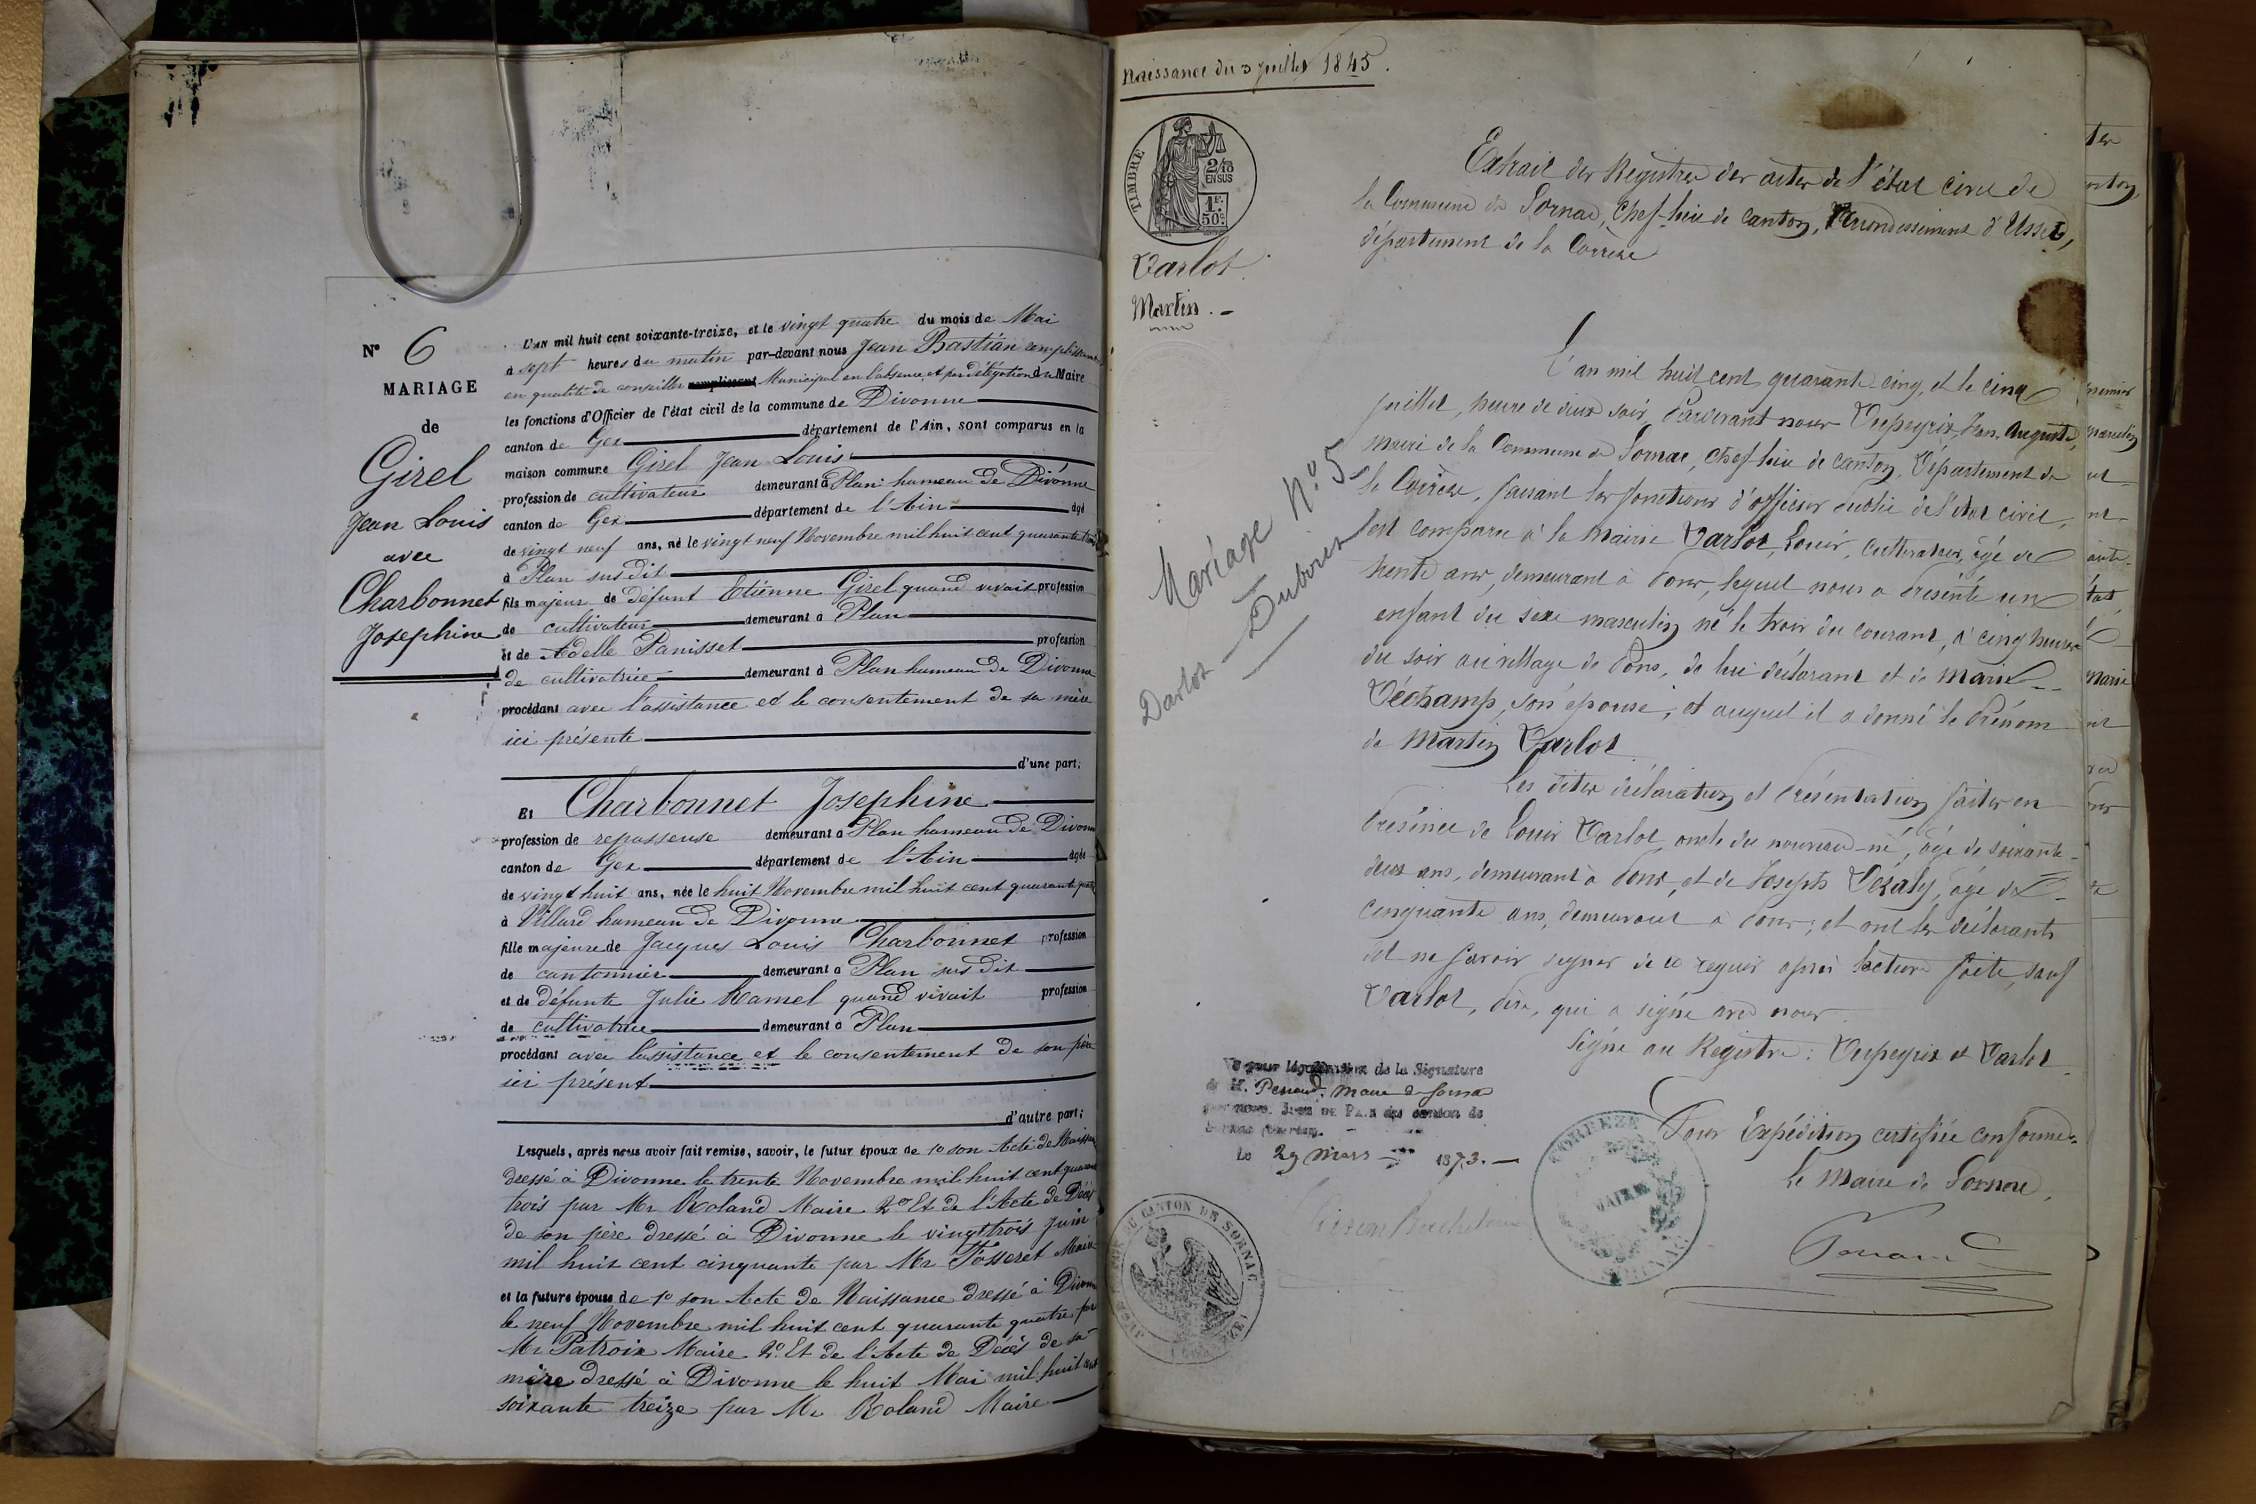 N° 6
MARIAGE
de
Girel
Jean Louis
avec
Charbonnet
Josephine
L'an mil huit cent soixante-treize, et le vingt quatre du mois de Mai
à sept heures du matin par-devant nous Jean Bastian
en qualité de conseiller Municipal en l'absence et par délégation du Maire
les fonctions d'Officier de l'état civil de la commune de Divonne
canton de Gex département de l'Ain, sont comparus en la
maison commune Girel Jean Louis
profession de cultivateur demeurant à Plan hameau de Divonne
canton de Gex département de l'Ain âgé
de vingt neuf ans, né le vingt neuf Novembre mil huit cent quarante trois
à Plan susdit
fils majeur de défunt Etienne Girel quand vivait profession
de cultivateur demeurant à Plan
et de Adelle Panisset profession
de cultivatrice demeurant à Plan hameau de Divonne
procédant avec l'assistance et le consentement de sa mère
ici présente
d'une part;
Et Charbonnet Josephine
profession de repasseuse demeurant à Plan hameau de Divonne
canton de Gex département de l'Ain âgée
de vingt huit ans, née le huit Novembre mil huit cent quarante quatre
à Villard hameau de Divonne
fille majeure de Jacques Louis Charbonnet profession
de cantonnier demeurant à Plan sus dit
et de défunte Julie Hamel quand vivait profession
de cultivatrice demeurant à Plan
procédant avec l'assistance et le consentement de son père
ici présent
d'autre part;
Lesquels, après nous avoir fait remise, savoir, le futur époux de 1° son Acte de Naissance
dressé à Divonne le trente Novembre mil huit cent quarante
trois par Mr Roland Maire 2° Et de l'Acte de Décès
de son père dressé à Divonne le vingt trois Juin
mil huit cent cinquante par Mr Fosseret Maire
et la future épouse de 1° son Acte de Naissance dressé à Divonne
le neuf Novembre mil huit cent quarante quatre par
Mr Patroix Maire 2° Et de l'Acte de Décès de sa
mère dressé à Divonne le huit Mai mil huit cent
soixante treize par Mr Roland Maire
Naissance du 3 juillet 1845.
TIMBRE
2/10
EN SUS
1F.
50c.
Varlot
Martin.
Extrait des Régistres des actes de l'état civil de
la Commune de Sornac, Chef-lieu de canton, Arrondissement d'Ussel,
département de la Corrèze
L'an mil huit cent quarante cinq, et le cinq
juillet, heure de deux soir, Pardevant nous Auguste,
maire de la Commune de Sornac, chef-lieu de canton, Département de
la Corrèze, faisant les fonctions d'officier public de l'état civil,
est comparu à la Mairie Varlot, Louis, cultivateur, âgé de
trente ans, demeurant à Pons, lequel nous a présenté un
enfant du sexe masculin né le trois du courant, à cinq heures
du soir au village de Pons, de lui déclarant et de Marie
Déchamp, son épouse, et auquel il a donné le prénom
de Martin Varlot.
Les dites déclaration et présentation faites en
présence de Louis Varlot oncle du nouveau-né, âgé de soixante-
deux ans, demeurant à Pons, et de Joseph âgé de
cinquante ans, demeurant à Pons; et ont les déclarants
dit ne savoir signer de ce requis après lecture faite, sauf
Varlot, qui a signé avec nous.
Signé au Registre: et Varlot.
Pour Expédition certifiée conforme.
Le Maire de Sornac,
Mariage N° 5
Darlot - Dubois
Vu pour légalisation de la Signature
de M. Maire de Sornac
Juge de Paix du canton de
Le 29 Mars 1873.
JUGE DE PAIX DU CANTON DE SORNAC
CORREZE
MAIRIE
SORNAC